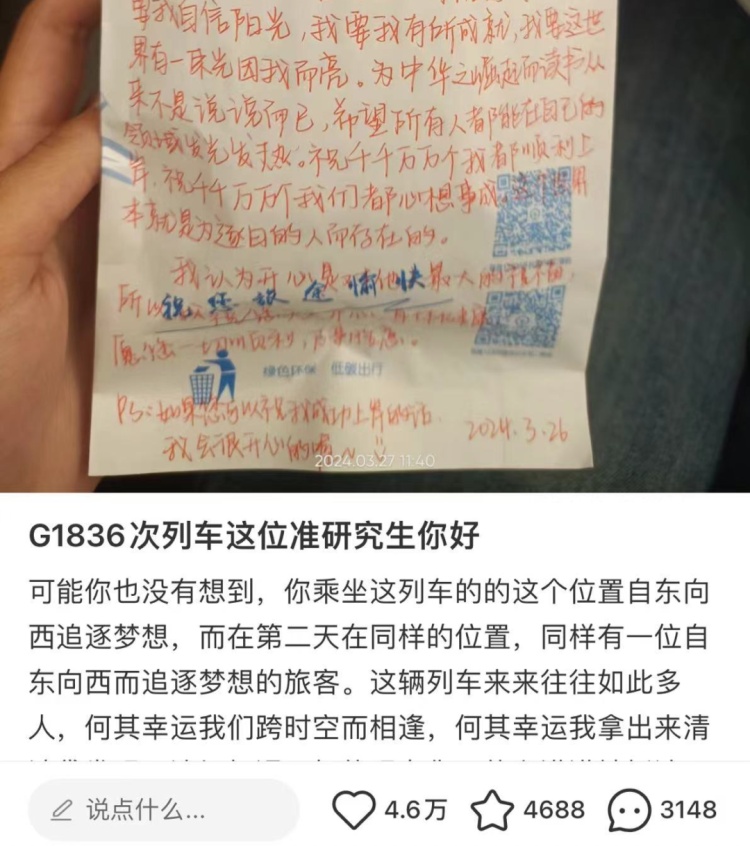 要我自信阳光，我要我有所成就，我要这世
界有一束光因我而亮。为中华之崛起而读书从
来不是说说而已，希望所有人都能在自己的
领域发光发热。祝千千万万个我都顺利上
岸，祝千千万万个我们都心想事成，这个世界
本就是为逐日的人而存在的。
我认为开心是对他
最大的祝福，
所以
祝您旅途愉快
愿您一切顺利，万事胜意。
绿色环保 低碳出行
PS：如果您可以祝我成功上岸的话
我会很开心的嘿~
2024.3.26
2024.03.27 11:40
G1836次列车这位准研究生你好
可能你也没有想到，你乘坐这列车的的这个位置自东向
西追逐梦想，而在第二天在同样的位置，同样有一位自
东向西而追逐梦想的旅客。这辆列车来来往往如此多
人，何其幸运我们跨时空而相逢，何其幸运我拿出来清
说点什么...
4.6万
4688
3148